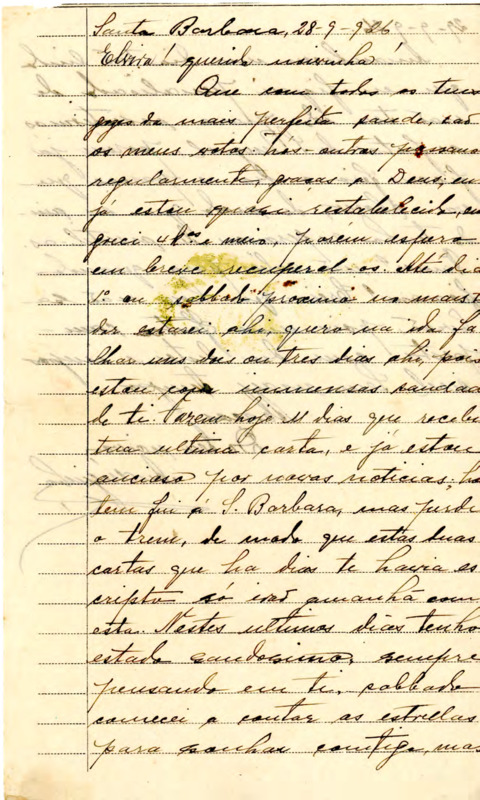 Santa Barbara, 28-9-926
Elvira! querida noivinha!
Que com todos os teus
goses da mais perfeita saude, são
os meus votos. Nós outros passamos
regularmente, graças a Deus, eu
já estou quasi restabelecido, em
4 kos e meio, porem espero
em breve recuperal-os. Até dia
1º ou sabbado proximo no mais
dar estarei ahi, quero na ida fa
lhar uns dois ou tres dias ahi, pois
estou com immensas saudad
de ti. Fazem hoje 11 dias que recebi
tua ultima carta, e já estou
ancioso por novas noticias; hon
tem fui á S. Barbara, mas perdi
o trem, de modo que estas duas
cartas que ha dias te havia es
cripto so irão amanhã com
esta. Nestes ultimos dias tenho
estado saudosissimo, sempre
pensando em ti, sabbado
comecei a contar as estrellas
para sonhar comtigo, mas